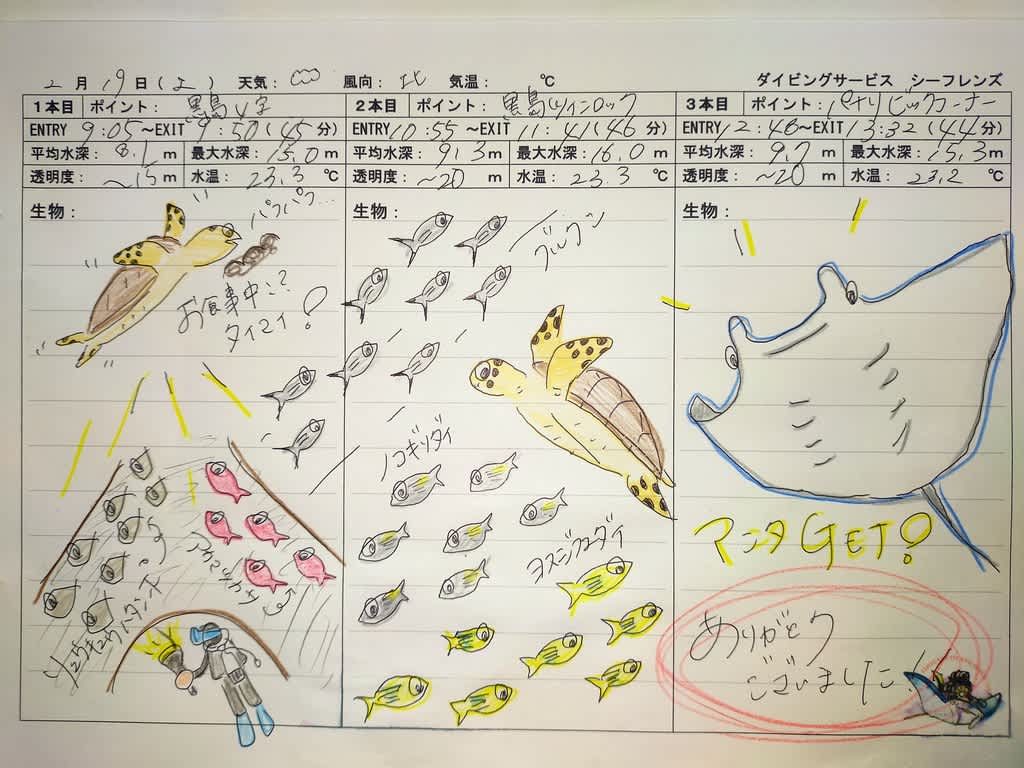 2月19日(土) 天気: 風向:北 気温: ℃ ダイビングサービス シーフレンズ
1本目 ポイント: 黒島V字
ENTRY 9:05~EXIT 9:50(45分)
平均水深: 8.1m 最大水深:15.0m
透明度: ~15m 水温: 23.3℃
生物:
パクパク…
お食事中!?
タイマイ!
アカマツカサ
リュウキュウハタンポ
2本目 ポイント: 黒島ツインロック
ENTRY 10:55~EXIT 11:41(46分)
平均水深: 9.3m 最大水深:16.0m
透明度: ~20m 水温: 23.3℃
生物:
グルクン
ノコギリダイ
ヨスジフエダイ
3本目 ポイント: パナリビッグコーナー
ENTRY 12:48~EXIT 13:32(44分)
平均水深: 9.7m 最大水深:15.3m
透明度: ~20m 水温: 23.2℃
生物:
マンタGET!
ありがとう
ございました!